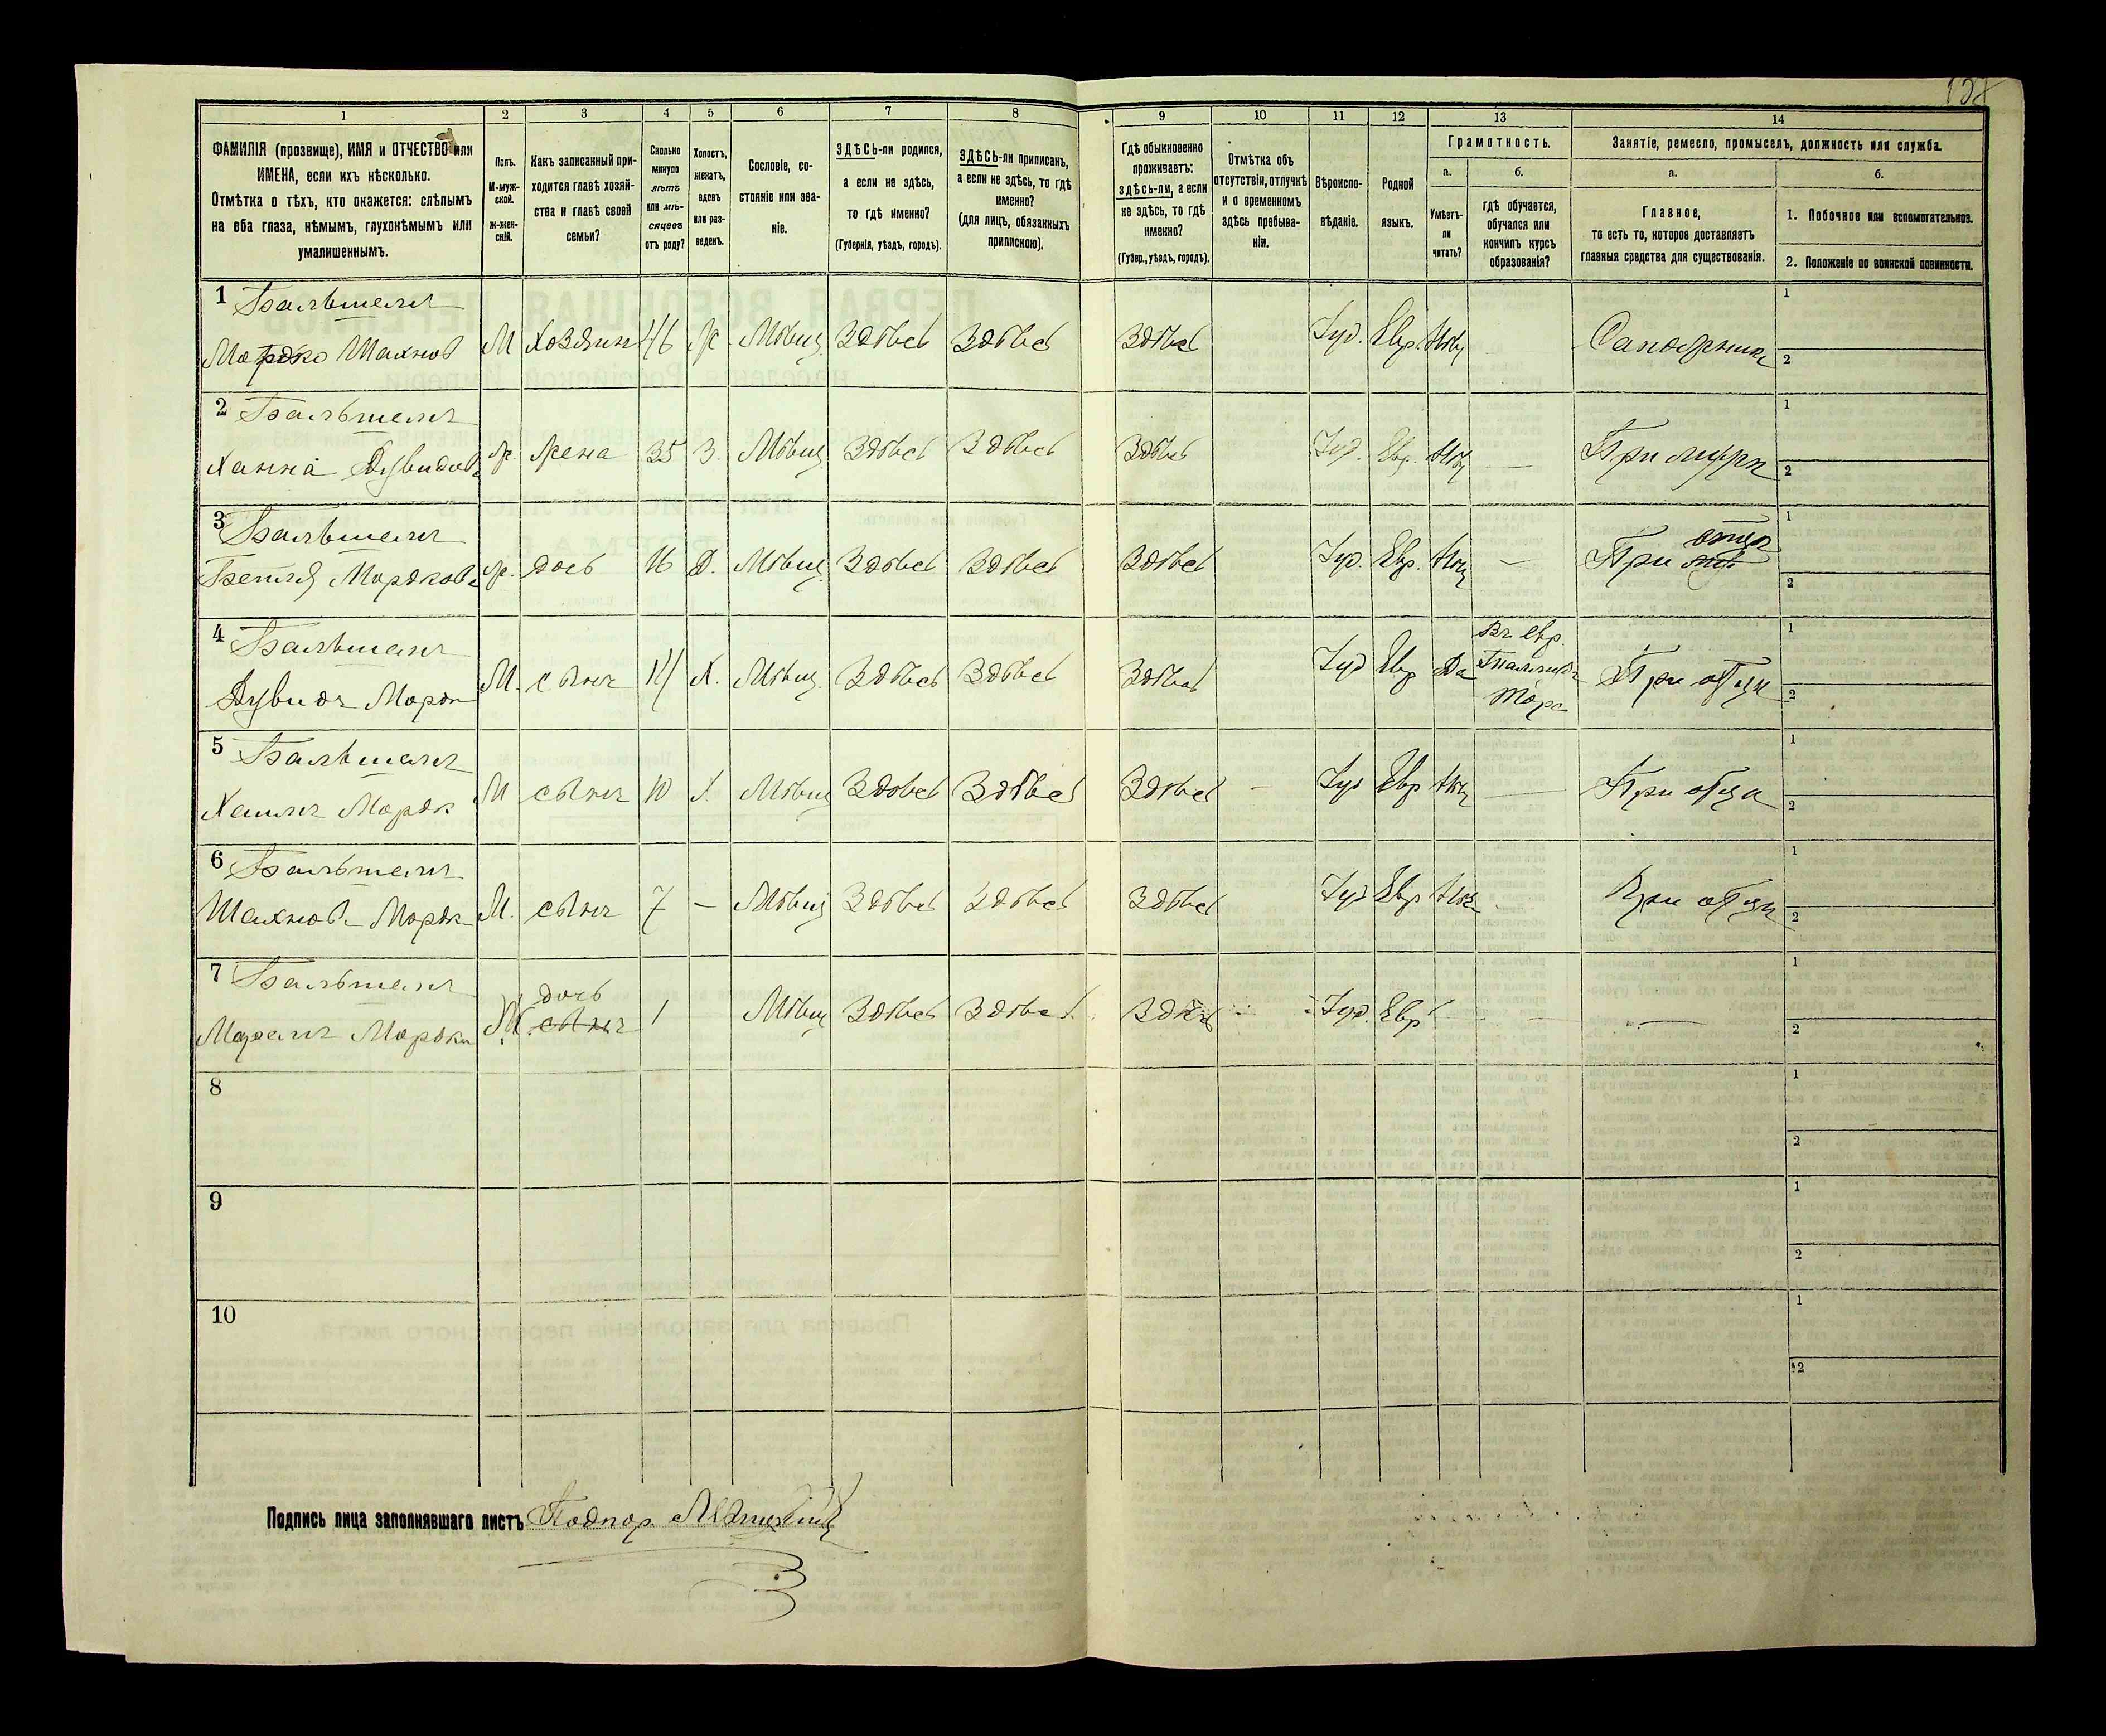 1
2
3
4
5
6
7
8
9
10
11
12
13
14
ФАМИЛІЯ (прозвище), ИМЯ и ОТЧЕСТВО или
ИМЕНА, если ихъ нѣсколько.
Отмѣтка о тѣхъ, кто окажется: слѣпымъ
на оба глаза, нѣмымъ, глухонѣмымъ или
умалишеннымъ.
Полъ.
М-муж-
ской.
Ж-жен-
скій.
Какъ записанный при-
ходится главѣ хозяй-
ства и главѣ своей
семьи?
Сколько
минуло
лѣтъ
или мѣ-
сяцевъ
отъ роду?
Холостъ,
женатъ,
вдовъ
или раз-
веденъ.
Сословіе, со-
стояніе или зва-
ніе.
ЗДѢСЬ-ли родился,
а если не здѣсь,
то гдѣ именно?
(Губернія, уѣздъ, городъ).
ЗДѢСЬ-ли приписанъ,
а если не здѣсь, то гдѣ
именно?
(для лицъ, обязанныхъ
припискою).
Гдѣ обыкновенно
проживаетъ:
здѣсь-ли, а если
не здѣсь, то гдѣ
именно?
(Губер., уѣздъ, городъ).
Отмѣтка объ
отсутствіи, отлучкѣ
и о временномъ
здѣсь пребыва-
ніи.
Вѣроиспо-
вѣданіе.
Родной
языкъ.
Грамотность.
а.
Умѣетъ-
ли
читать?
б.
гдѣ обучается,
обучался или
кончилъ курсъ
образованія?
Занятіе, ремесло, промыселъ, должность или служба.
а.
Главное,
то есть то, которое доставляетъ
главныя средства для существованія.
б.
1. Побочное или вспомогательное.
2. Положеніе по воинской повинности.
1 Бальшемъ
Мордко Шахнов М Хозяин 46 Ж. Мѣщ. Здѣсь Здѣсь Здѣсь Іуд. Евр. Сапожникъ
1
2
2 Бальшемъ
Ханна Дувидов Ж. Жена 35 З. Мѣщ. Здѣсь Здѣсь Здѣсь Іуд. Евр. — При мужѣ
1
2
3 Бальшемъ
Бейля Мордков Ж. дочь 16 Д. Мѣщ. Здѣсь Здѣсь Здѣсь Іуд. Евр. — При отцѣ
1
2
4 Бальшемъ
Дувидъ Мордк М. сынъ 14 Х. Мѣщ. Здѣсь Здѣсь Здѣсь Іуд Евр Да Въ Евр. При отцѣ
1
2
5 Бальшемъ
Хаимъ Мордк М сынъ 10 Х. Мѣщ Здѣсь Здѣсь Здѣсь — Іуд Евр — При отцѣ
1
2
6 Бальшемъ
Шахнов Мордк М. сынъ 7 — Мѣщ Здѣсь Здѣсь Здѣсь Іуд Евр При отцѣ
1
2
7 Бальшемъ
Мордк Ж. дочь сынъ 1 Мѣщ Здѣсь Здѣсь Здѣсь Іуд. Евр — — —
1
2
8
1
2
9
1
2
10
1
2
Подпись лица заполнявшаго листъ Подпор.